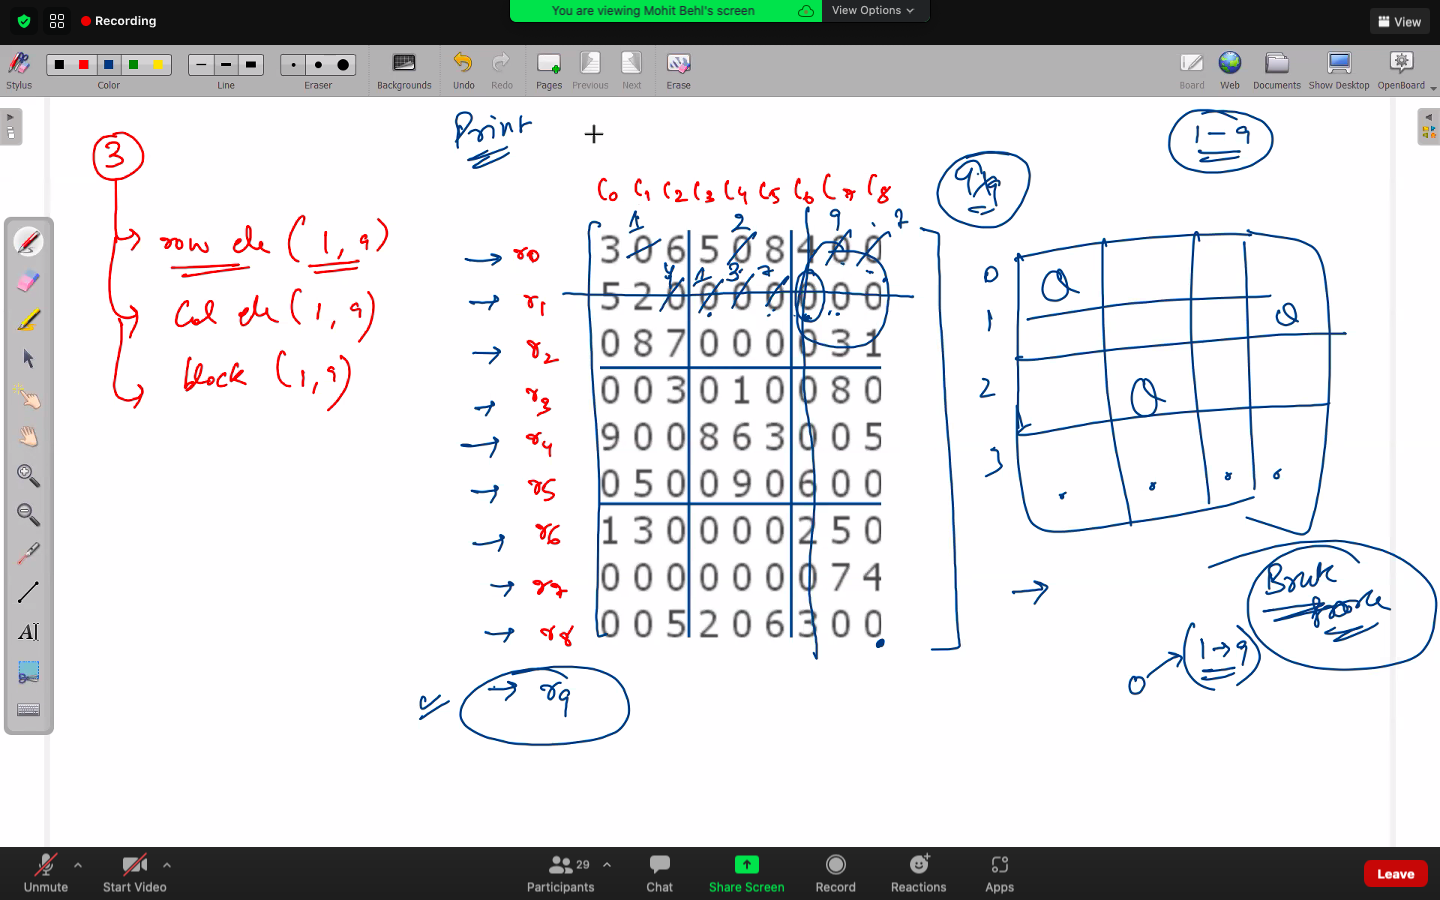 You are viewing Mohit Behl's screen
View Options
Recording
View
Stylus
Color
Line
Eraser
Backgrounds
Undo
Redo
Pages
Previous
Next
Erase
Board
Web
Documents
Show Desktop
OpenBoard
Print
1 - 9
3
row ele (1, 9)
Col ele (1, 9)
block (1, 9)
9x9
C0 C1 C2 C3 C4 C5 C6 C7 C8
1 2 9 7
→ r0 3 0 6 5 0 8 4 0 0
4 1 3 7
→ r1 5 2 0 0 0 0 0 0 0
→ r2 0 8 7 0 0 0 0 3 1
→ r3 0 0 3 0 1 0 0 8 0
→ r4 9 0 0 8 6 3 0 0 5
→ r5 0 5 0 0 9 0 6 0 0
→ r6 1 3 0 0 0 0 2 5 0
→ r7 0 0 0 0 0 0 0 7 4
→ r8 0 0 5 2 0 6 3 0 0
→ r9
0 Q
1 Q
2 Q
3
→
Brute
force
0 (1→9)
A
Unmute
Start Video
29
Participants
Chat
Share Screen
Record
Reactions
Apps
Leave